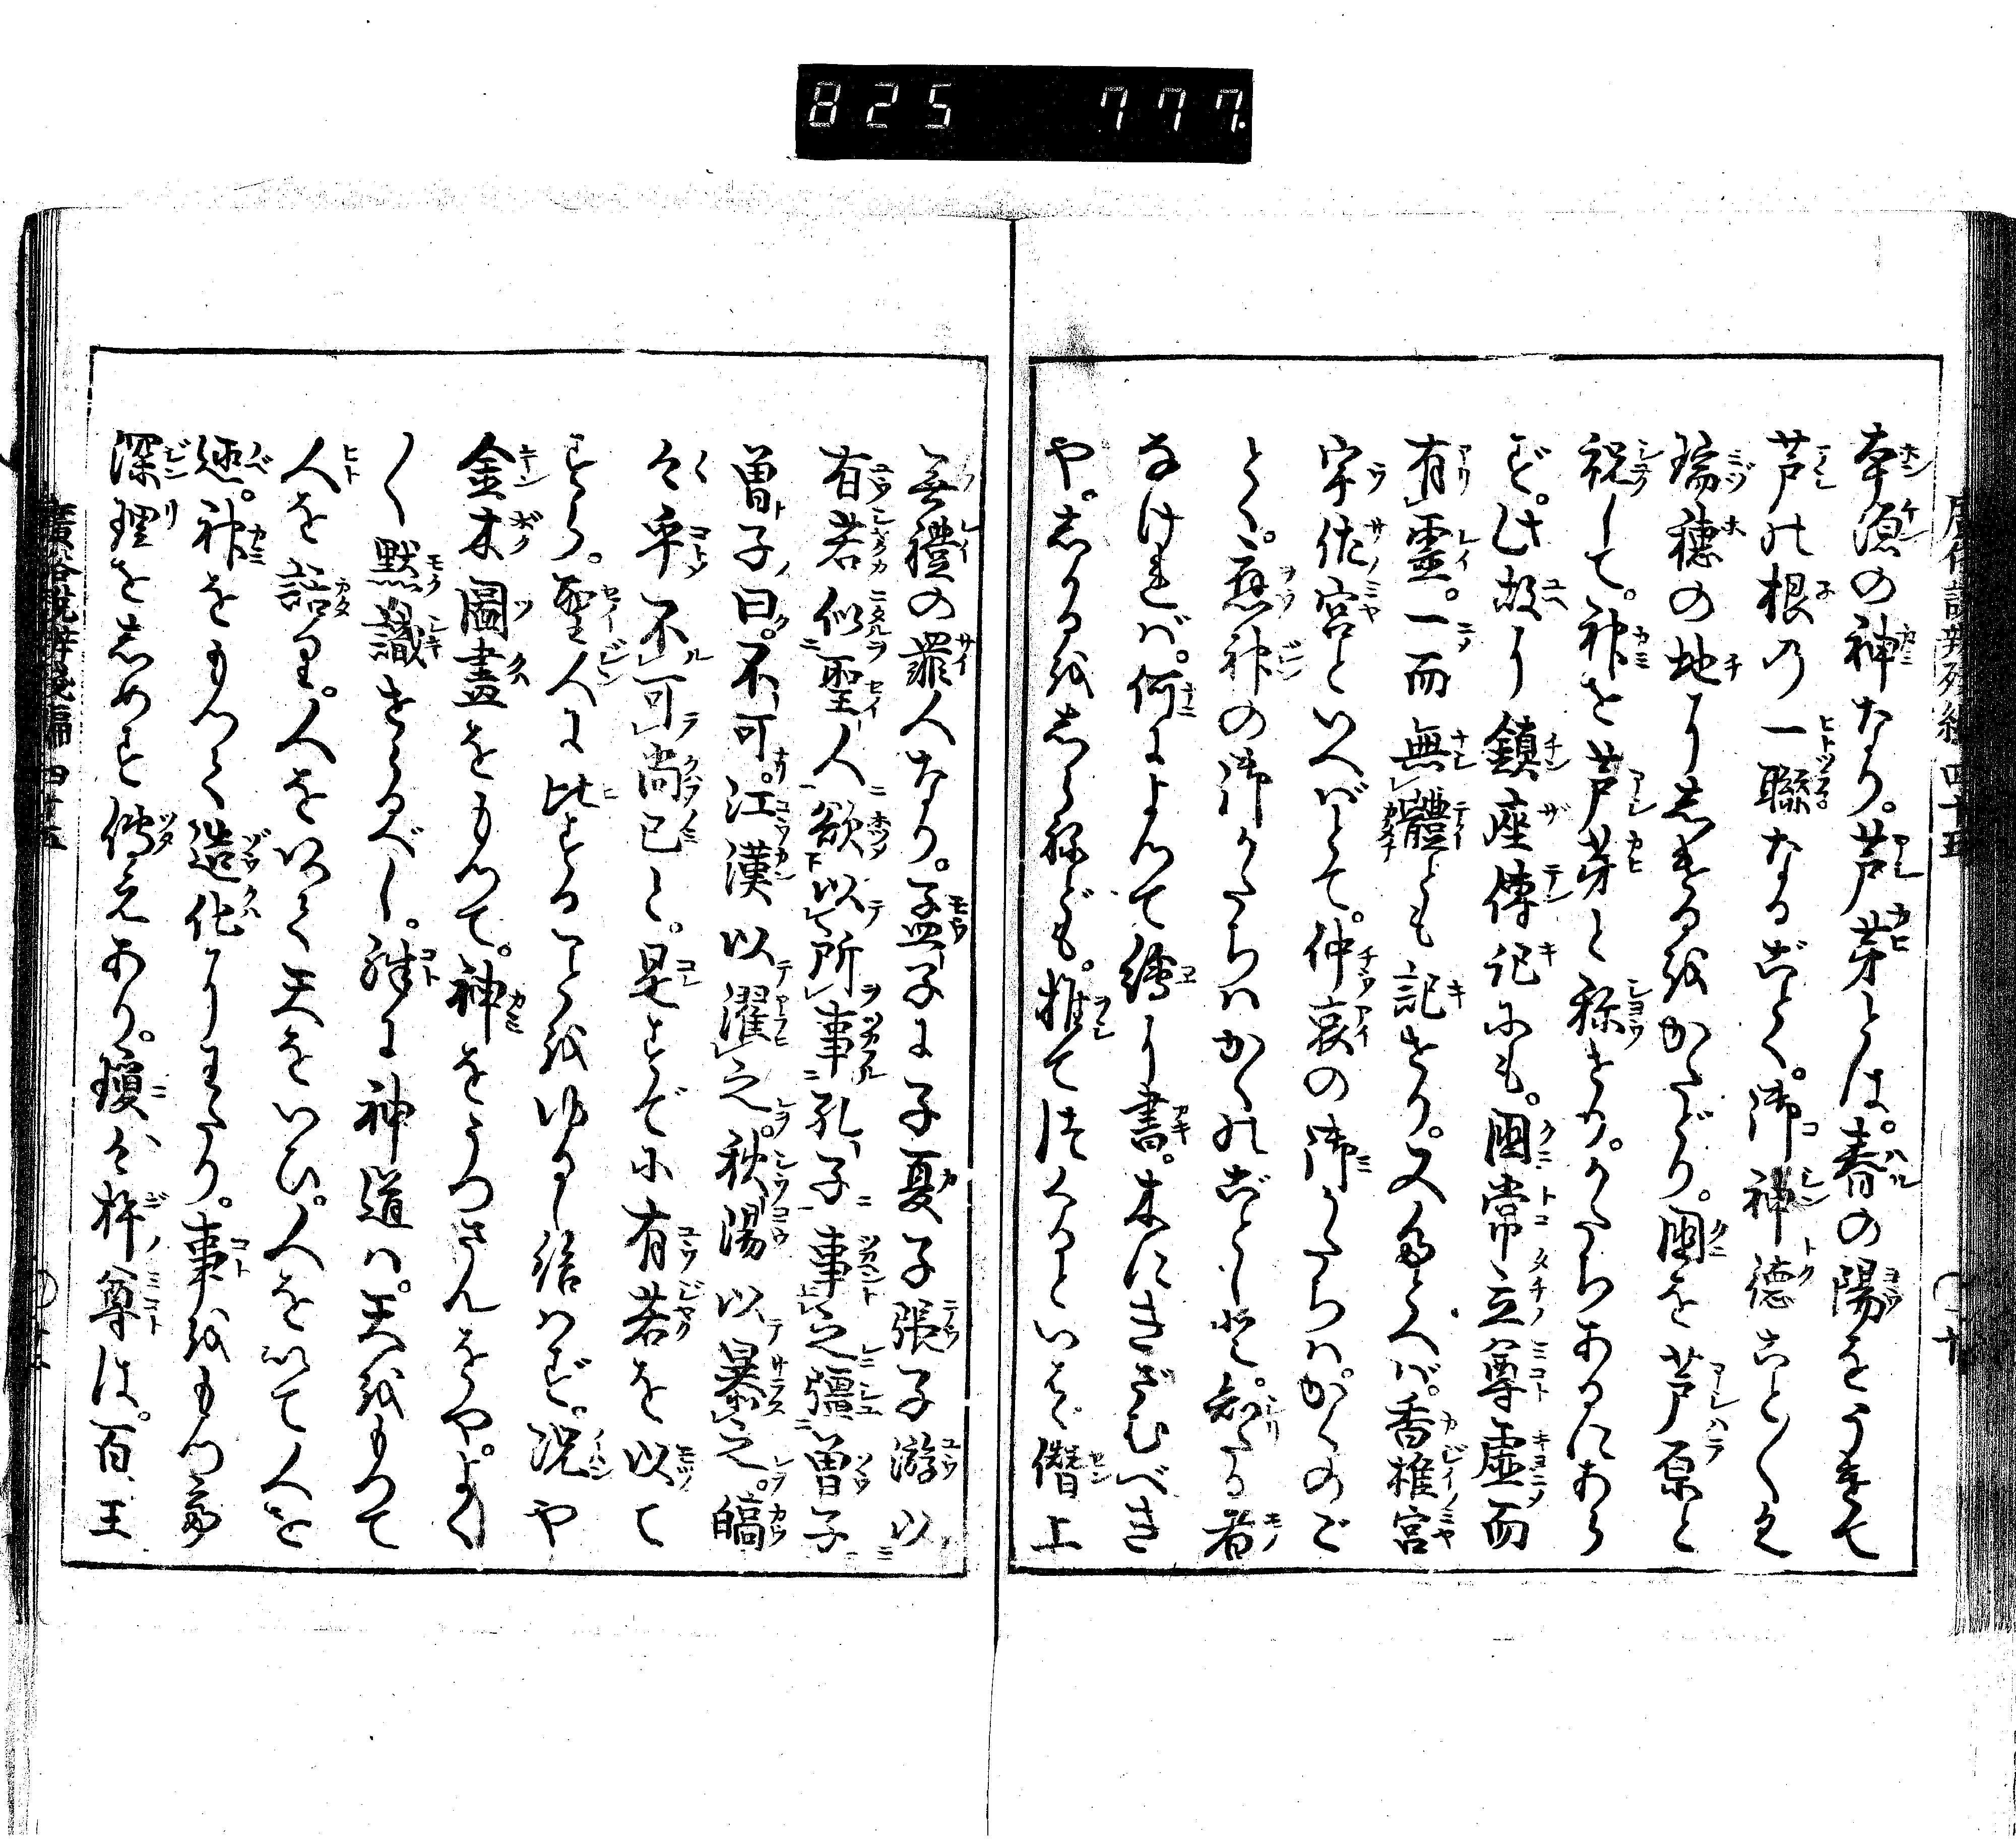 825 777
本源の神なり。芦芽とは。春の陽をうけて
芦の根の一聯なるごとく。御神徳ことくく
瑞穂の地にしけるをかたどり。国を芦原と
祝して。神を芦芽と称せり。かたちあるにあら
ず。此故に鎮座傳記にも。国常立尊虚而
有霊。一而無體とも記せり。又たとへば。香椎宮
宇佐宮といへばとて。仲哀の御かたちは。かくのご
とく。應神の御かたちはかくのごとしと。知たる者
なければ。何によつて絵に書。木にきざむべき
や。しかるをしらねども。推てにたるといはゞ僭上
無禮の罪人なり。孟子に子夏子張子游以
有若似聖人欲以所事孔子事之彊曽子
曽子曰。不可。江漢以濯之。秋陽以暴之。皜
々乎不可尚已と。是すでに有若を以て
すら。聖人に比することをゆるし給はず。況や
金木圖畫をもつて。神をうつさんをや。よく
く黙識せらるべし。殊に神道は。天をもつて
人を語り。人を以て天をいひ。人を以て人を
述。神をもつて造化にわたり。事をもつて
深理をしめす傳えあり。瓊々杵尊は。百王